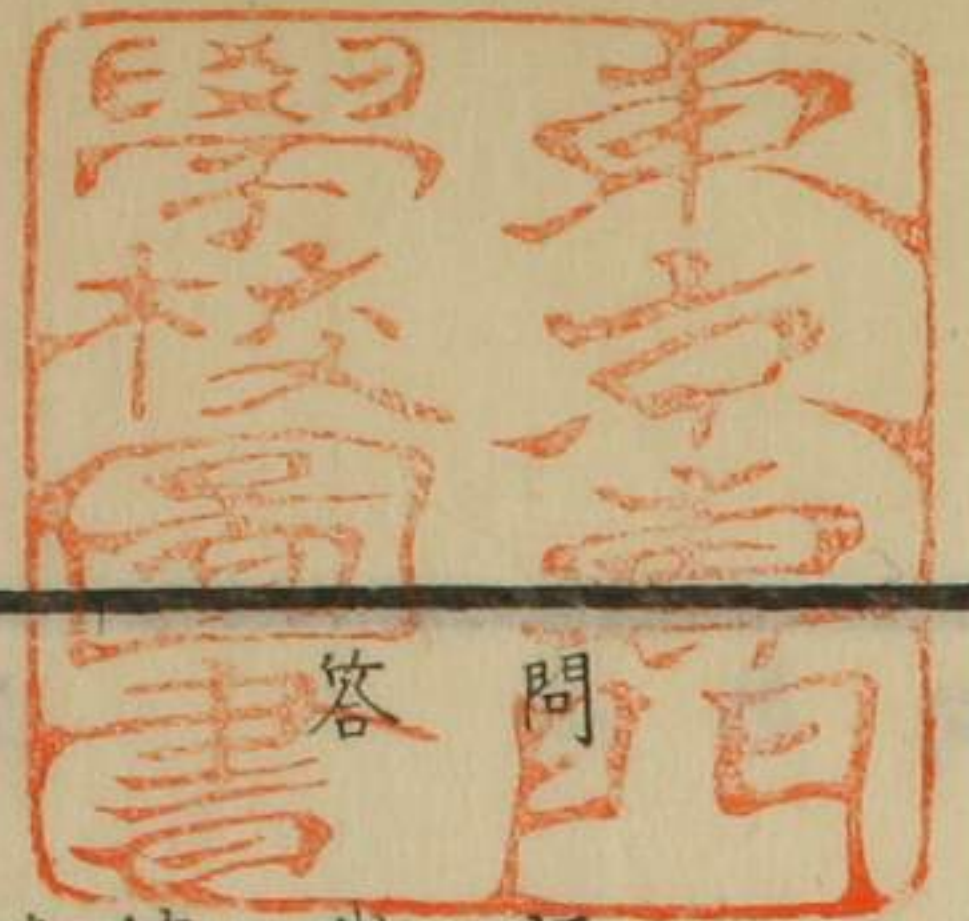 東京專門
學校圖書
問
答